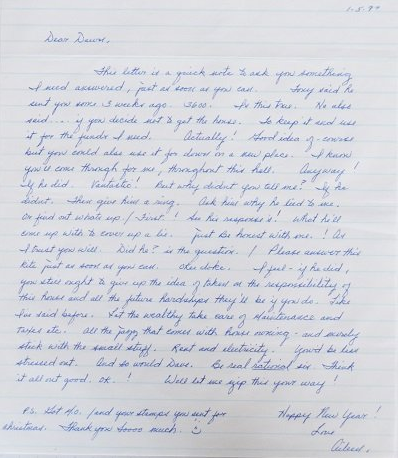 1-5-97
Dear Dawn,
This letter is a quick note to ask you something
I need answered, just as soon as you can. Tony said he
sent you some 3 weeks ago. 3600. Is this true. He also
said . . . . if you decide not to get the house. To keep it and use
it for the funds I need. Actually! Good idea of-course
but you could also use it for down on a new place. I know
you'll come through for me, throughout this hell. Anyway!
If he did. Fantastic! But why didnt you tell me? If he
didnt. Then give him a ring. Ask him why he lied to me.
Or find out whats up / First! See his response's! What he'll
come up with to cover up a lie. Just be honest with me. ! As
I trust you will. Did he? is the question. ! Please answer this
kite just as soon as you can. Okie doke. I feel - if he did,
you still ought to give up the idea of taken on the responsibility of
this house and all the future hardships they'll be if you do. Like
Ive said before. Let the wealthy take care of maintenance and
taxes etc. All the jazz that comes with house owning - and merely
stick with the small stuff. Rent and electricity. You'd be less
stressed out. And so would Dave. Be real rational sis. Think
it all out good. OK. ! Well let me zip this your way!
P.S. Got M.O. / and your stamps you sent for
christmas. Thank you soooo much.
Happy New Year!
Love
Aileen.